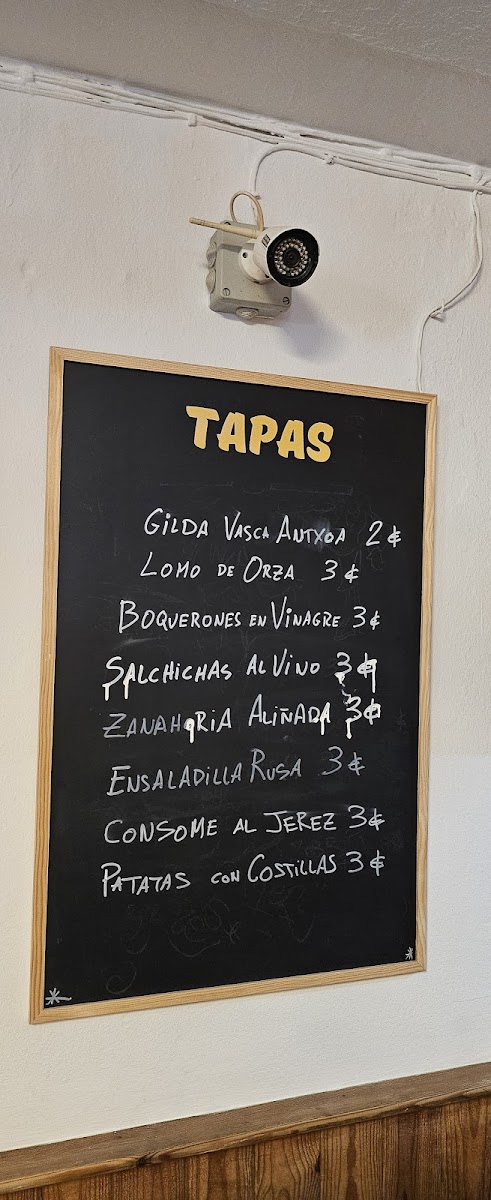 TAPAS
GILDA VASCA ANTXOA 2 €
LOMO DE ORZA 3 €
BOQUERONES EN VINAGRE 3 €
SALCHICHAS AL VINO 3 €
ZANAHORIA ALIÑADA 3 €
ENSALADILLA RUSA 3 €
CONSOME AL JEREZ 3 €
PATATAS CON COSTILLAS 3 €